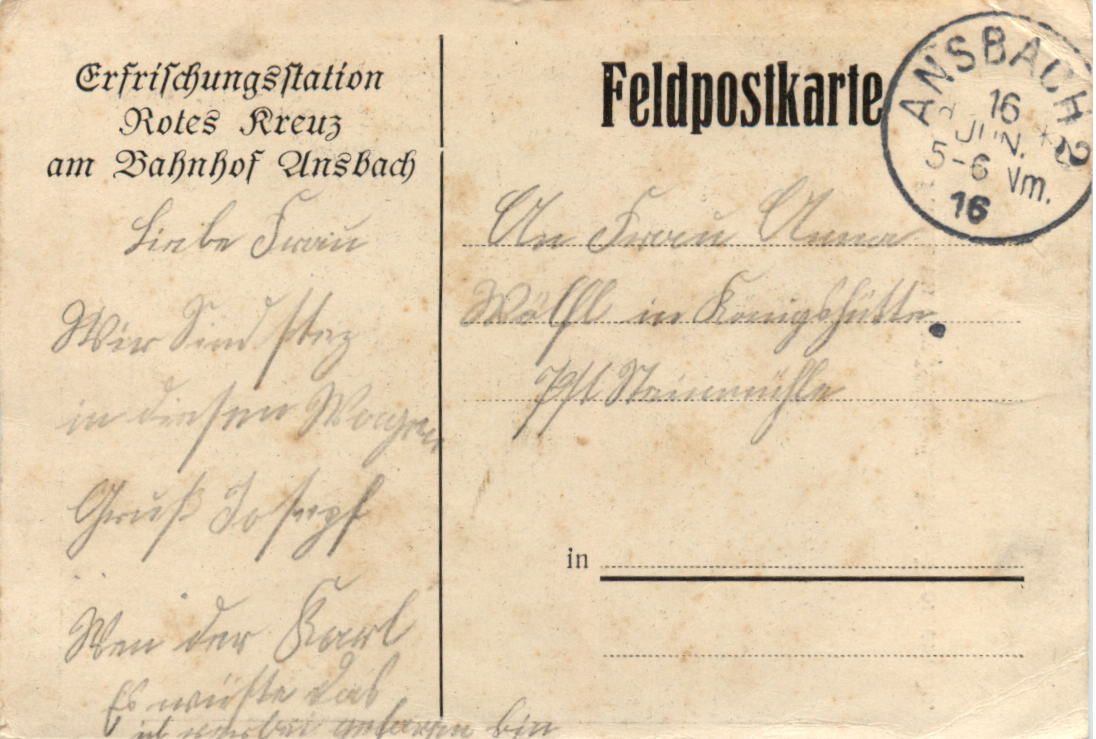 Erfrischungsstation
Rotes Kreuz
am Bahnhof Ansbach
Liebe Frau
Wir Sind stez
in diesen Wagen
Gruß Josepf
Wen der Karl
Es wüste das
ich vorbei gefaren bin
Feldpostkarte
ANSBACH 2
16
JUN.
5-6 Vm.
16
An Frau Anna
Wölfl in Königshütte
Pst Steinmühle
in